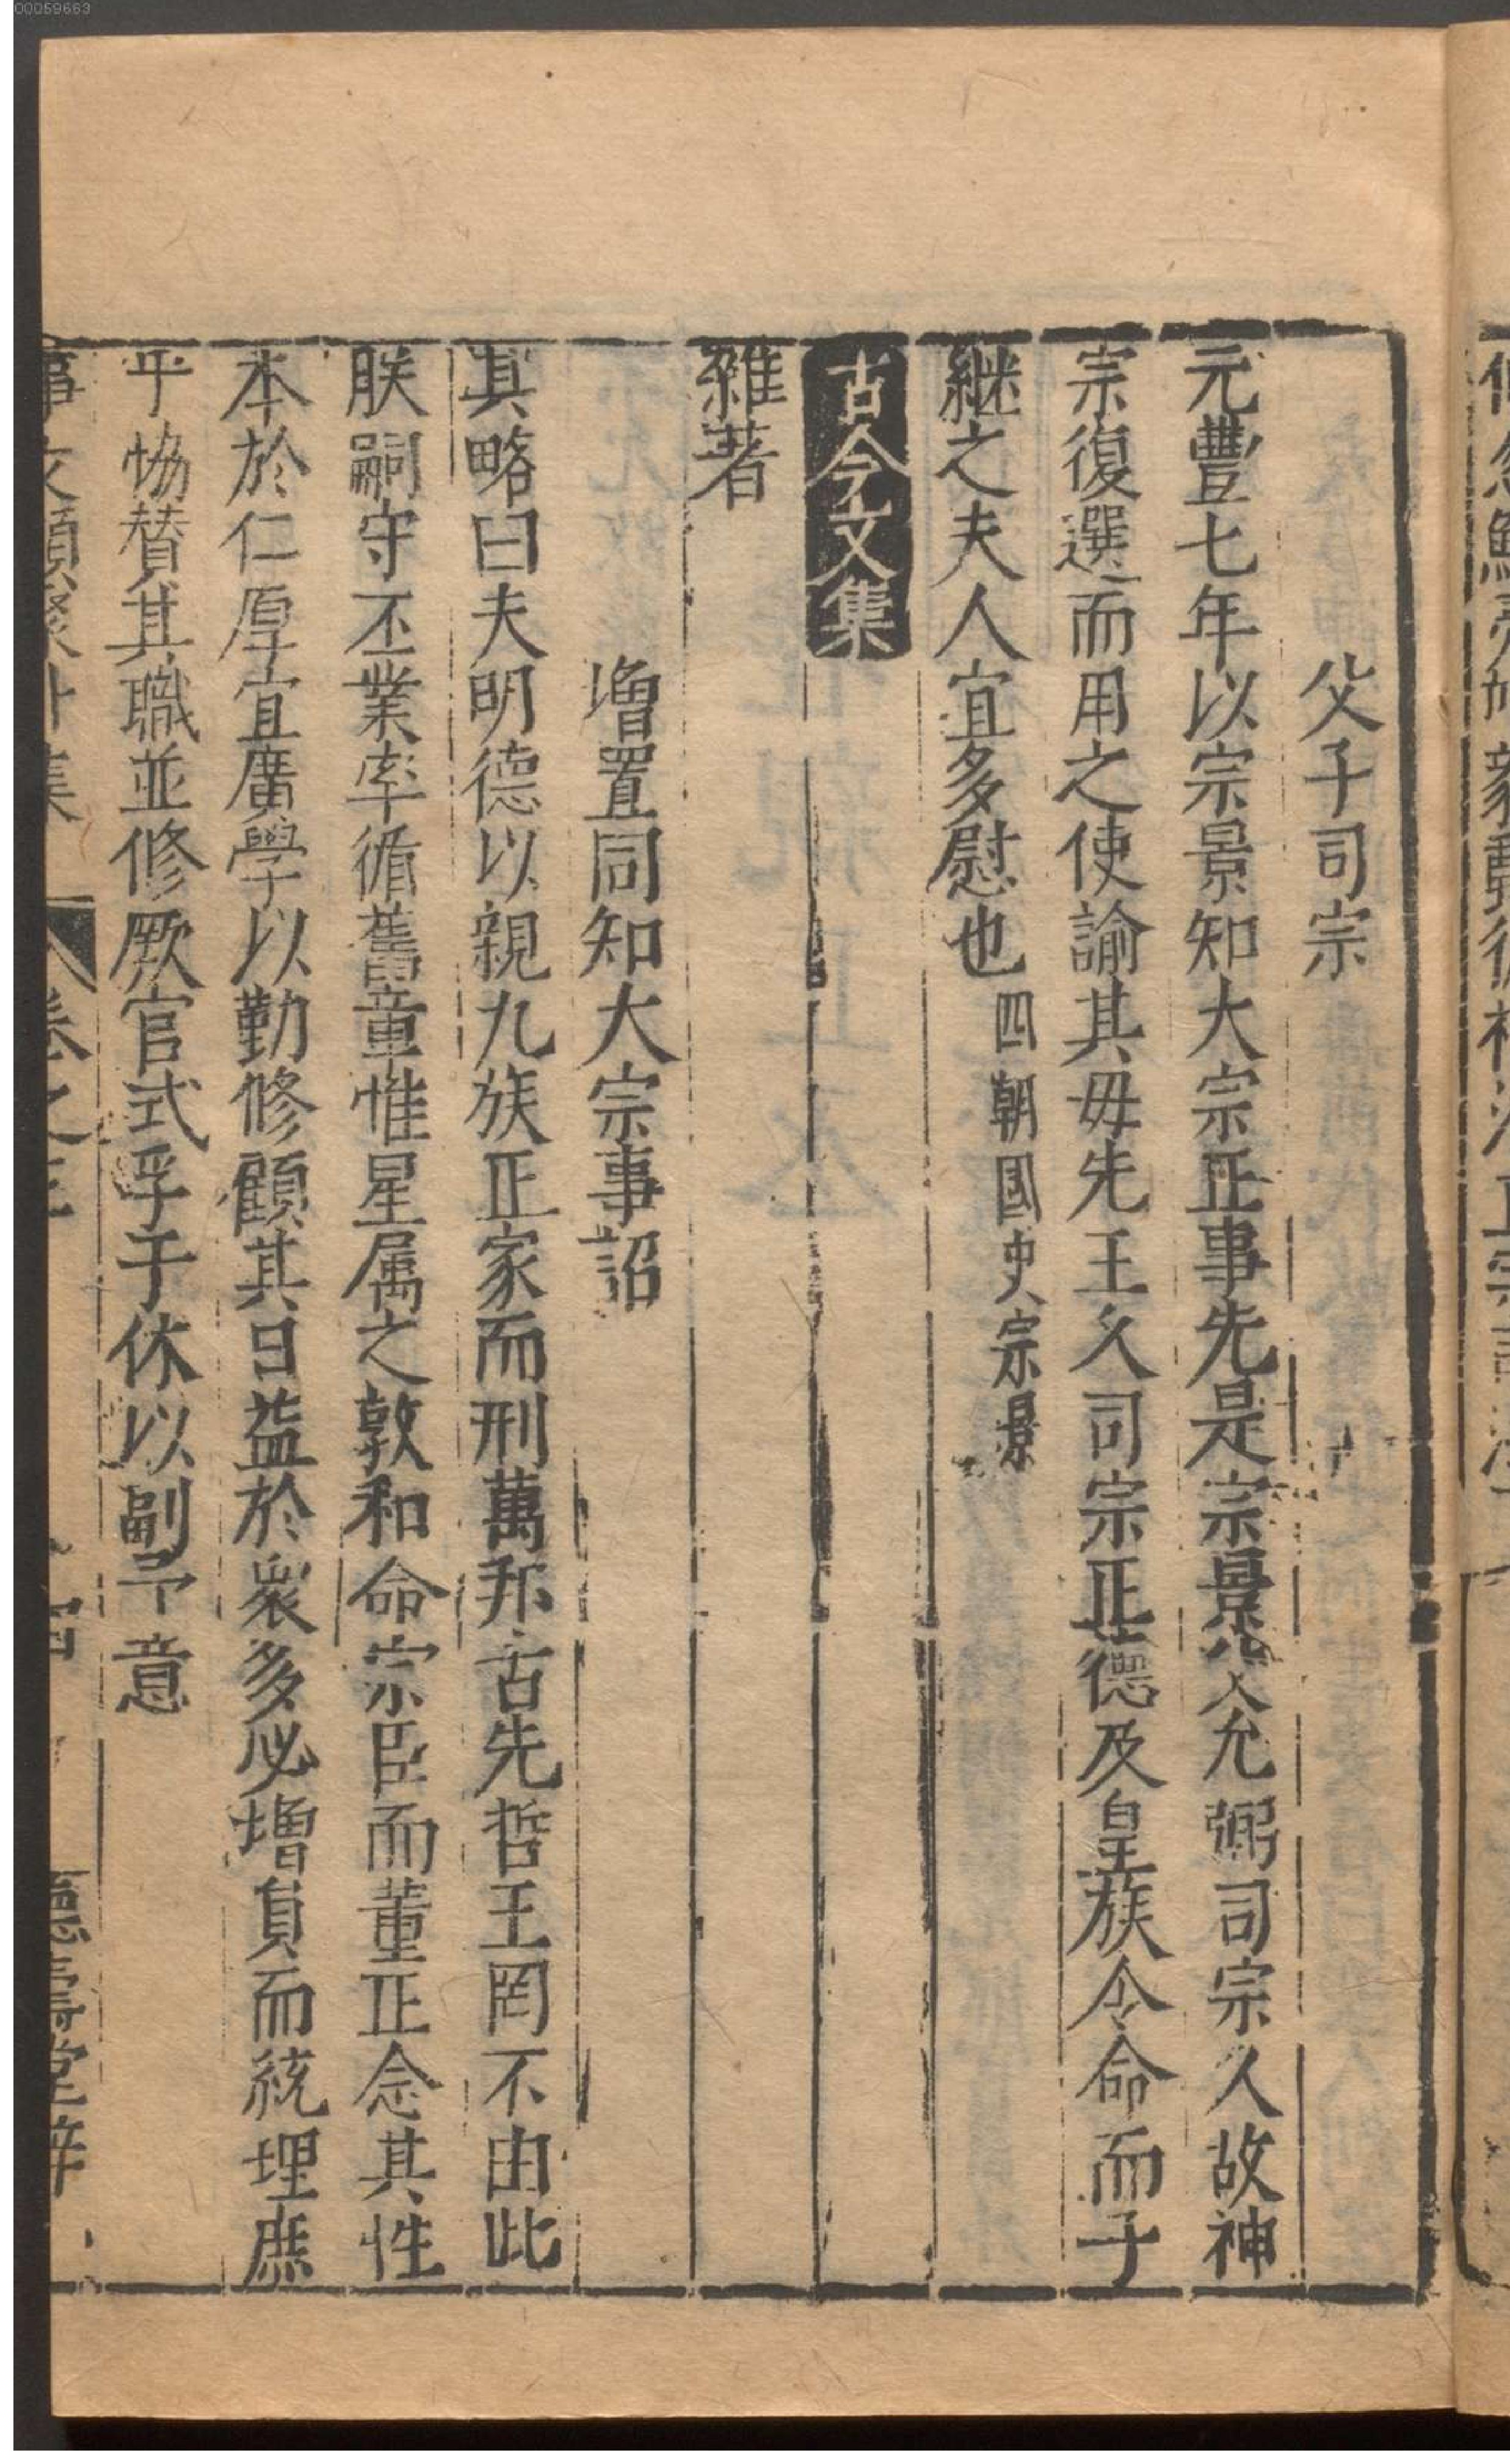 父子司宗
元豐七年以宗景知大宗正事先是宗景父允弼司宗久故神
宗復選而用之使諭其毋先王久司宗正德及皇族今命而子
継之夫人宜多慰也四朝國史宗景
古今文集
雜著
增置同知大宗事詔
其略曰夫明德以親九族正家而刑萬邦古先哲王罔不由此
朕嗣守丕業率循舊章惟星属之敦和命宗臣而董正念其性
本於仁厚宜廣學以勤修顧其日益於衆多必增負而統理庶
乎恊賛其職並修厥官式孚于休以副予意
事文類聚外集
卷之三
德壽堂梓
00059663